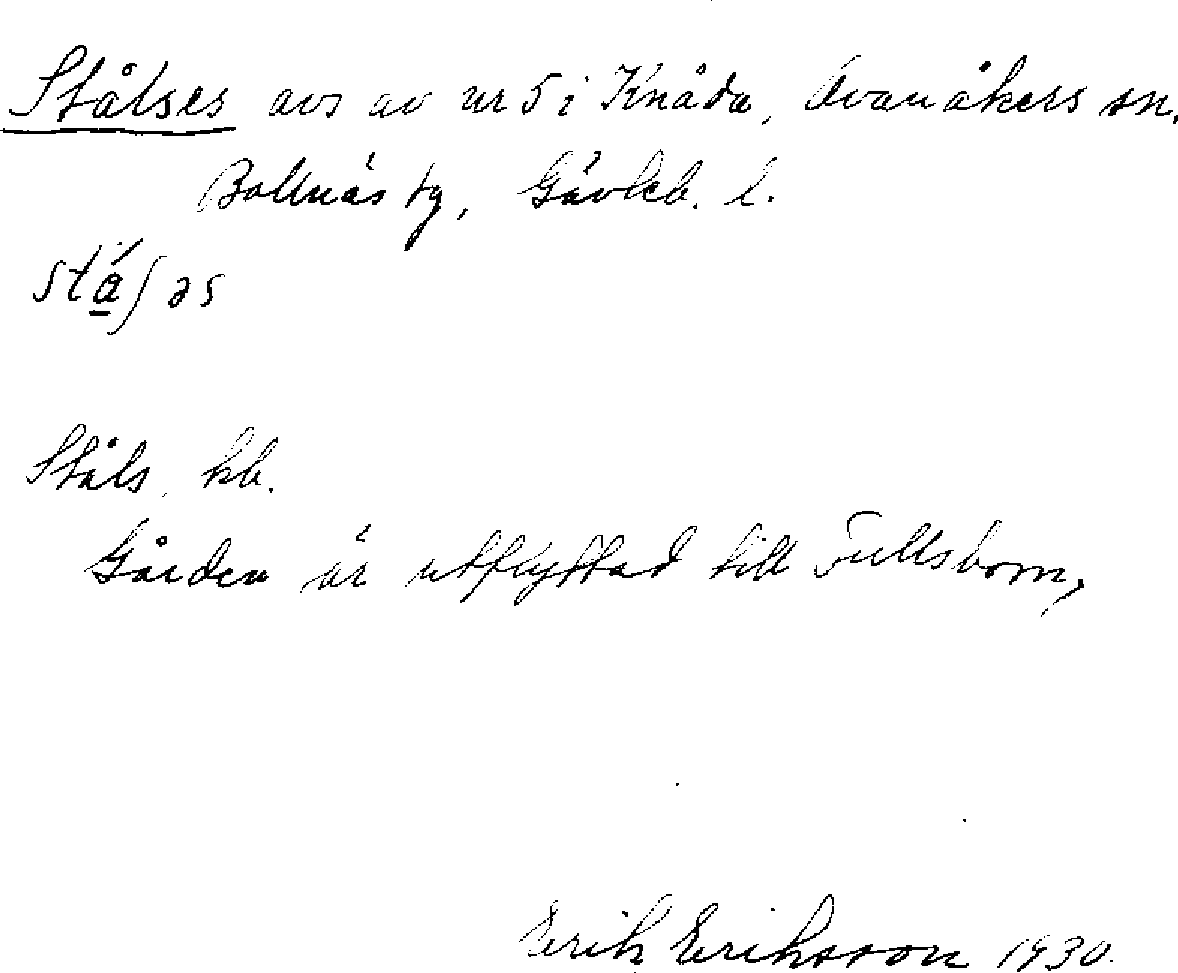 Stålses avs av nr 5 i Knåda, Ovanåkers sn.
Bollnäs tg, Gävleb. l.
Ståls, kb.
Gården är utflyttad till Fullsborn,
Erik Eriksson 1930.